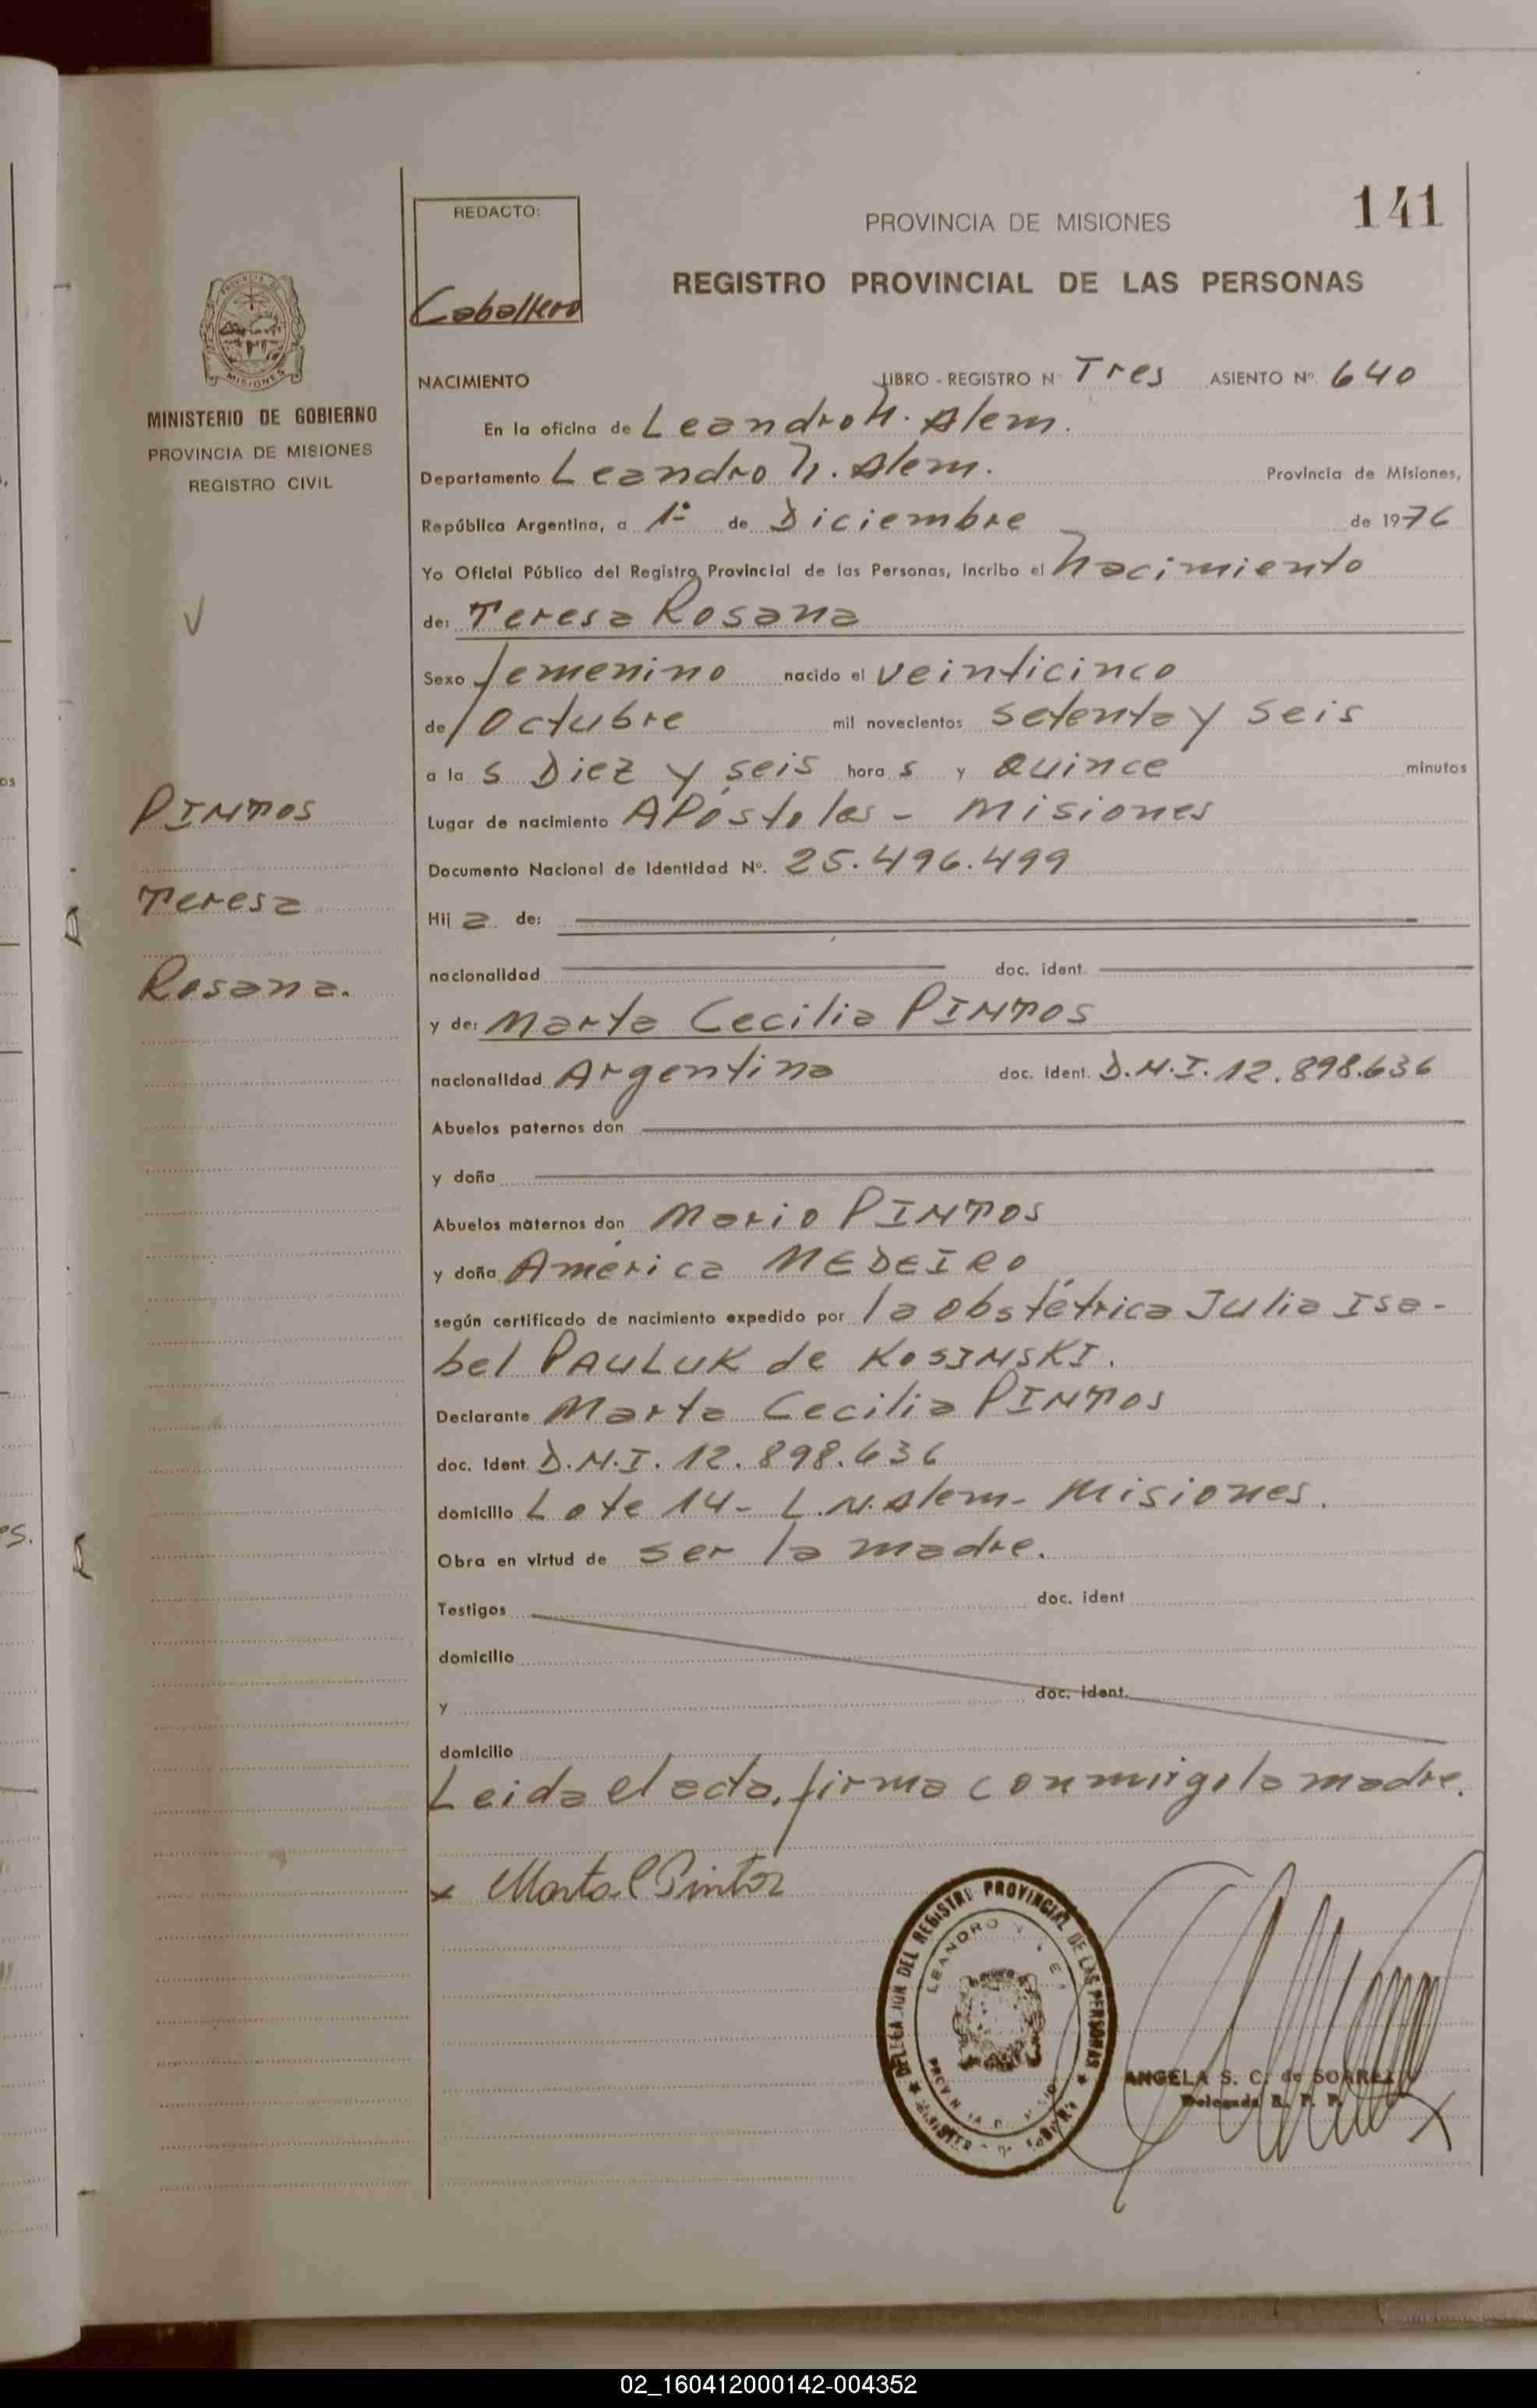 141
REDACTO:
Caballero
PROVINCIA DE MISIONES
REGISTRO PROVINCIAL DE LAS PERSONAS
MISIONES
MINISTERIO DE GOBIERNO
PROVINCIA DE MISIONES
REGISTRO CIVIL
NACIMIENTO LIBRO - REGISTRO N Tres ASIENTO Nº. 640
En la oficina de Leandro N. Alem.
Departamento Leandro N. Alem. Provincia de Misiones,
República Argentina, a 1º de Diciembre de 1976
Yo Oficial Público del Registro Provincial de las Personas, incribo el Nacimiento
de: Teresa Rosana
Sexo femenino nacido el veinticinco
de Octubre mil novecientos setenta y seis
a las Diez y seis horas y Quince minutos
Lugar de nacimiento APóstoles - Misiones
Documento Nacional de Identidad Nº. 25.496.499
Hija de:
nacionalidad doc. ident.
y de: Marta Cecilia PINTOS
nacionalidad Argentina doc. ident. D.N.I. 12.898.636
Abuelos paternos don
y doña
Abuelos maternos don Mario PINTOS
y doña América MEDEIRO
según certificado de nacimiento expedido por la obstétrica Julia Isa-
bel PAULUK de KOSINSKI.
Declarante Marta Cecilia PINTOS
doc. Ident. D.N.I. 12.898.636
domicilio Lote 14- L.N.Alem- Misiones.
Obra en virtud de ser la madre.
Testigos doc. ident
domicilio
y doc. ident.
domicilio
Leida el acta, firma conmigo la madre.
PINTOS
Teresa
Rosana.
x Marta C Pintos
DEL REGISTR PROVINCIAL DE LAS PERSONAS
LEANDRO
ANGELA S. C. de SOAREZ
Delegada R. P. P.
02_160412000142-004352